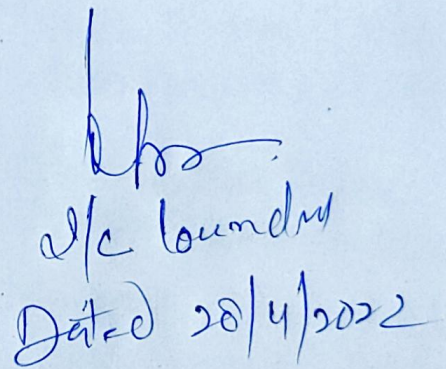 I/c Laundry
Dated 28/4/2022